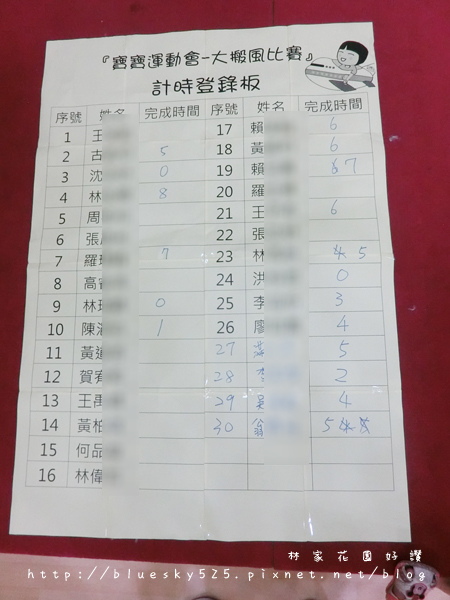 『寶寶運動會-大搬風比賽』
計時登錄板
序號 姓名 完成時間 序號 姓名 完成時間
1 王 17 賴 6
2 古 5 18 黃 6
3 沈 0 19 賴 7
4 林 8 20 羅
5 周 21 王 6
6 張 22 張
7 羅 7 23 林 5
8 高 24 洪 0
9 林 0 25 李 3
10 陳 1 26 廖 4
11 黃 27 5
12 賀 28 2
13 王 29 吳 4
14 黃柏 30 翁 5
15 何品
16 林偉
林家花園好讚
http://bluesky525.pixnet.net/blog